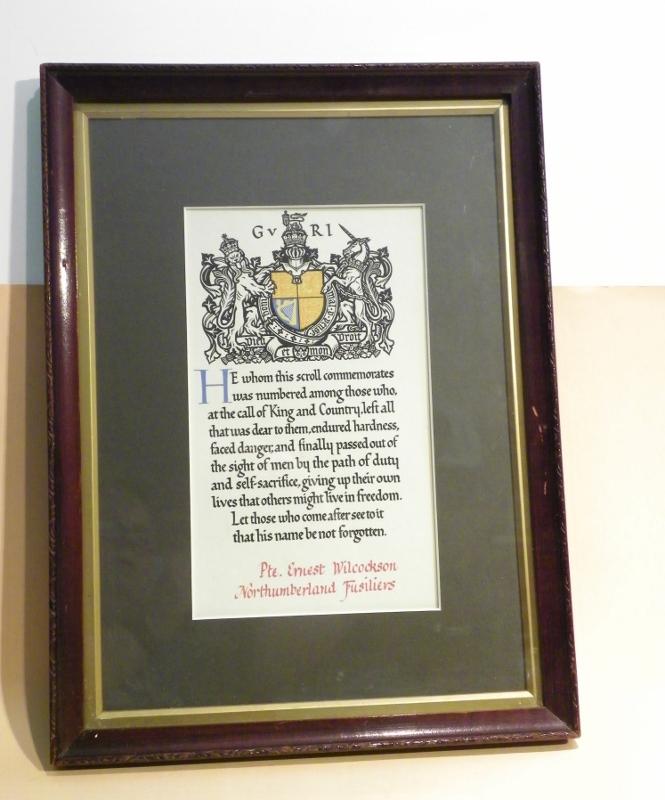 GvRI
Dieu et mon Droit
HE whom this scroll commemorates
was numbered among those who,
at the call of King and Country, left all
that was dear to them, endured hardness,
faced danger, and finally passed out of
the sight of men by the path of duty
and self-sacrifice, giving up their own
lives that others might live in freedom.
Let those who come after see to it
that his name be not forgotten.
Pte. Ernest Wilcockson
Northumberland Fusiliers